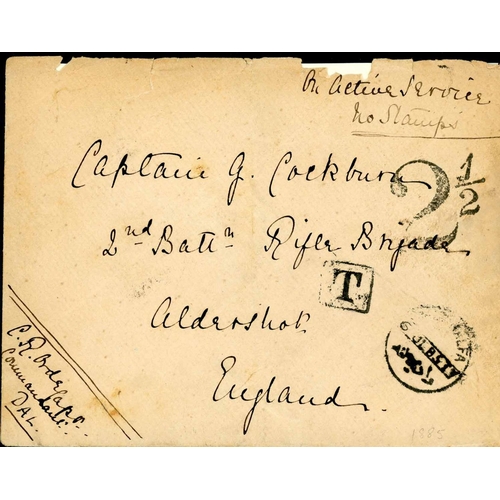 On Active Service
No Stamps
Captain G. Cockburn
2 1/2
2nd Battn Rifle Brigade
T
Aldershot
England
Commandant
DAL.
1885